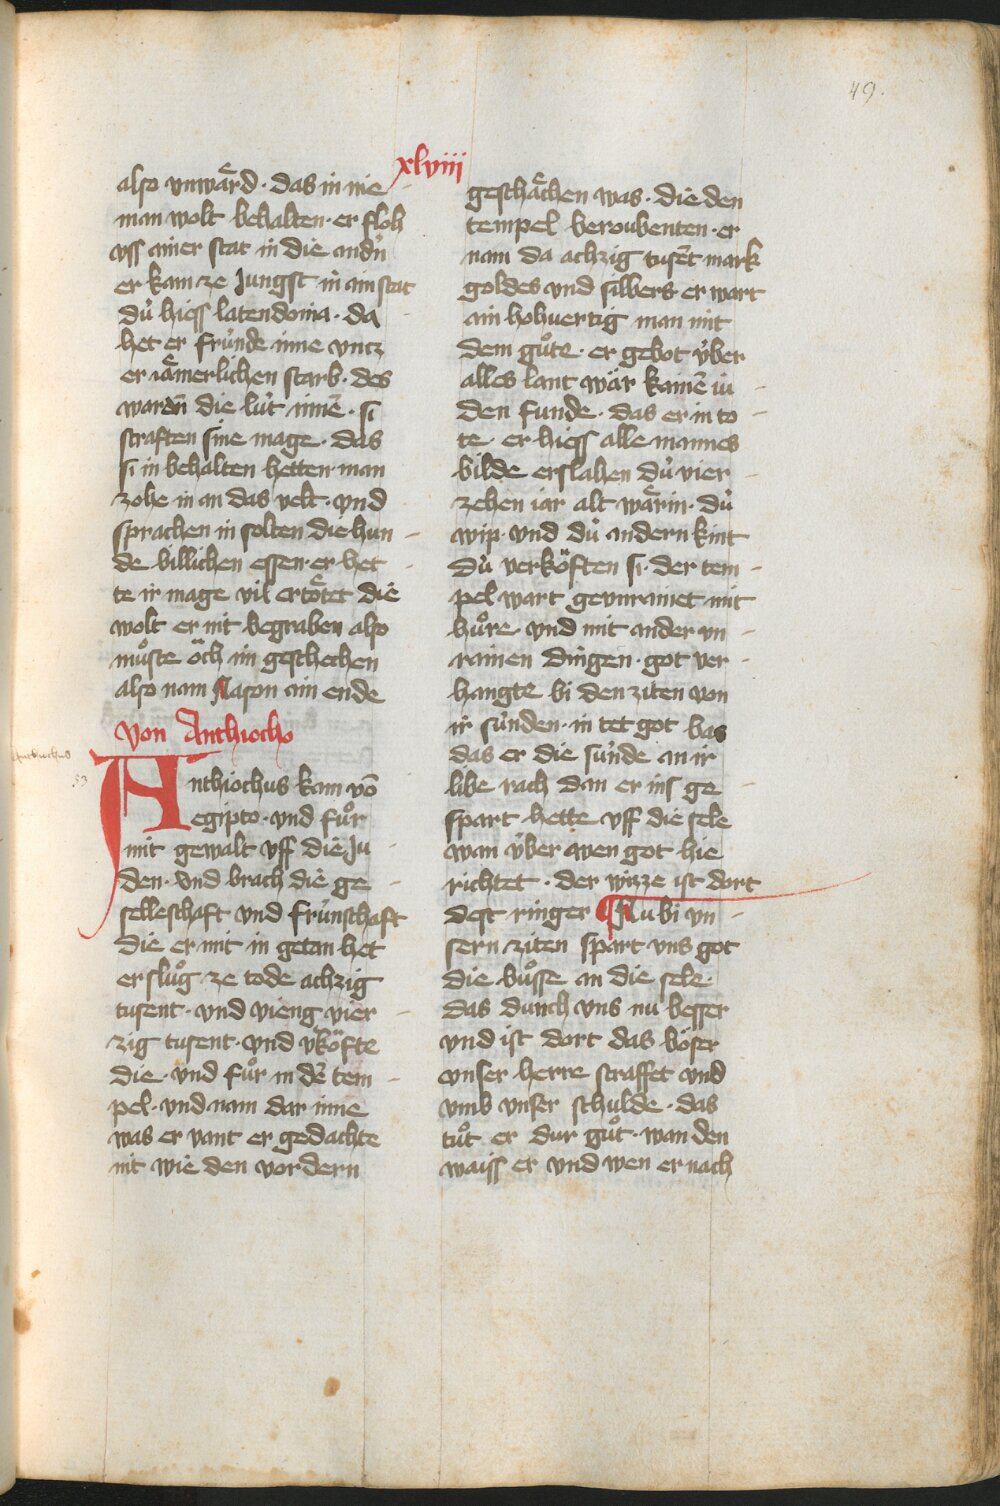 49.
xlviii
also unwaͤrd · das in nie
man wolt behalten · er floh
uss ainer stat in die andn̄
er kam ze Jungst in ain stat
dü hiess latendonia · da
het er fründe inne untz
er iaͤmerlichen starb · des
waren die lüt innē · si
straften sine mage · das
si in behalten hetten · man
zohe in an das velt · und
sprachen in solten die hun
de billichen essen · er het
te ir mage vil ertoͤtet die
wolt er nit begraben also
muͦste oͤch im geschechen
also nam Jason ain ende
Von Anthiocho
Anthiochus
53
Anthiochus kam vō
egipto · und fuͦr
mit gewalt uff die Ju
den · und brach die ge
selleschaft und früntschaft
die er mit in getan het
er sluͦg ze tode achzig
tusent · und vieng vier
zig tusent · und v̓koͤfte
die · und fuͦr in dē tem
pel · und nam dar inne
was er vant er gedachte
nit wie den vordern
geschaͤchen was · die den
tempel beroubenten · er
nam da achzig tusēt mark
goldes und silbers er wart
ain hohvertig man mit
dem guͦte · er gebot über
alles lant wär kainē iu
den funde · das er in to
te · er hiess alle mannes
bilde erslahen dü vier
zehen iar alt waͤrin · dü
wip · und dü andern kint
dü verkoͤften si · der tem
pel wart geunrainet mit
huͦre · und mit ander un
rainen dingen · got ver
hangte bi den ziten von
ir sünden · in tet got bas
das er die sünde an ir
libe rach dan er ins ge
spart hette uff die sele
wan über wen got hie
richtet · der wizze ist dort
dest ringer Nu bi un
sern ziten spart uns got
die buͦsse an die sele ·
das dunch uns nu besser
und ist dort das böser
unser herre straffet und
umb unser schulde · das
tuͦt er dur guͦt · wan den
waiss er und wen er nach